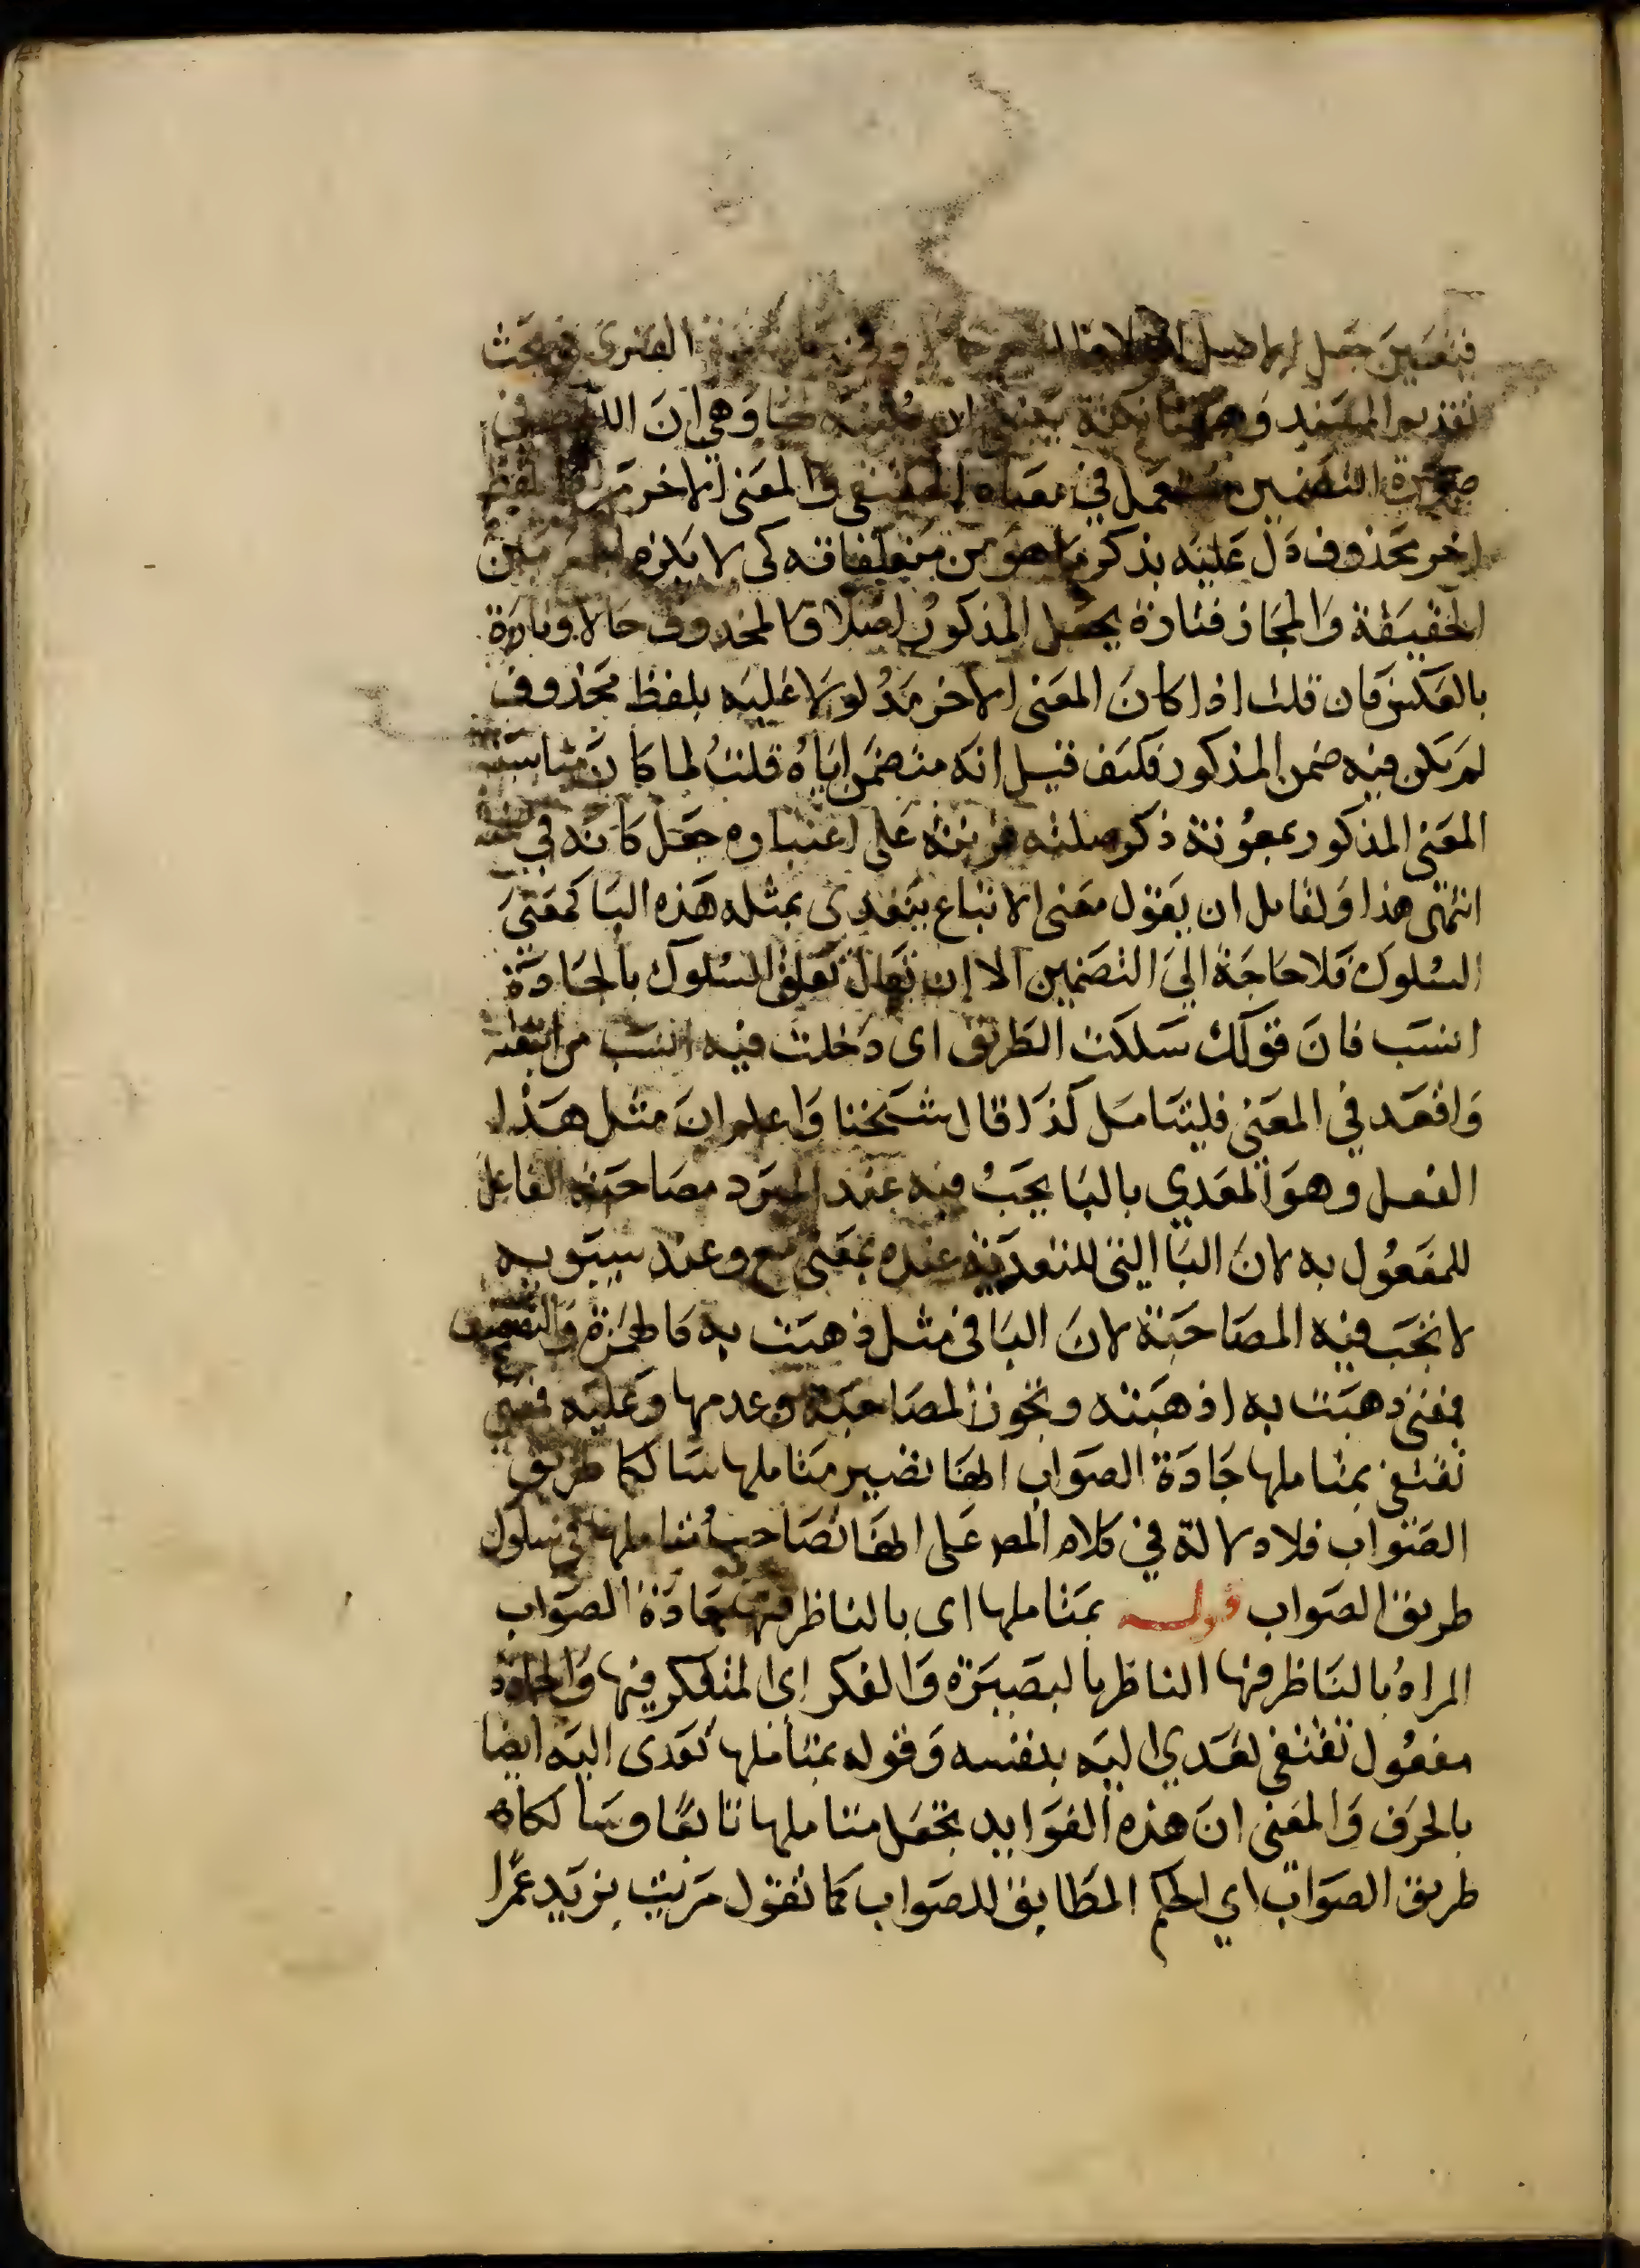 فيتعين جعل الاصل الفنرى في بحث
تقديم المسند وههنا نكتة ان وهي ان اللفظ في
صورة التضمين مستعمل في معناه الحقيقي والمعنى الاخر مراد بلفظ
اخر محذوف دل عليه بذكر ما هو من متعلقاته كى لا يلزم الجمع بين
الحقيقة والمجاز فتارة يجعل المذكور اصلا والمحذوف حالا وتارة
بالعكس فان قلت اذا كان المعنى الاخر مدلولا عليه بلفظ محذوف
لم يكن فيه ضمن المذكور فكيف قيل انه متضمن اياه قلت لما كان مناسبة
المعنى المذكور بمعونة ذكر صلته قرينة على اعتباره جعل كانه في ضمنه
انتهى هذا ولقايل ان يقول معنى الاتباع يتعدى بمثله هذه البا كمعنى
السلوك فلا حاجة الى التضمين الا ان يقال تعلق السلوك بالجادة
انسب فان قولك سلكت الطريق اى دخلت فيه انسب من اتبعته
واقعد في المعنى فليتامل كذا قال شيخنا واعلم ان مثل هذا
الفعل وهو المعدي بالبا يجب فيه عند المبرد مصاحبة الفاعل
للمفعول به لان البا التى للتعدية عنده بمعنى مع وعند سيبويه
لا تجب فيه المصاحبة لان البا فى مثل ذهبت به كالهمزة والتضعيف
فمعنى ذهبت به اذهبته وتجوز المصاحبة وعدمها وعليه فمعنى
تقتفى بمتاملها جادة الصواب انها تصير متاملها سالكا طريق
الصواب فلا دلالة في كلام المص على انها تصاحب متاملها في سلوك
طريق الصواب قوله بمتاملها اى بالناظر فيها جادة الصواب
المراد بالناظر فيها الناظر بالبصيرة والفكر اى المتفكر فيها والجادة
مفعول تقتفى تعدي اليه بنفسه وقوله بمتاملها تعدى اليه ايضا
بالحرف والمعنى ان هذه الفوايد تجعل متاملها تابعا وسالكا
طريق الصواب اي الحكم المطابق للصواب كما تقول مررت بزيد عمرا